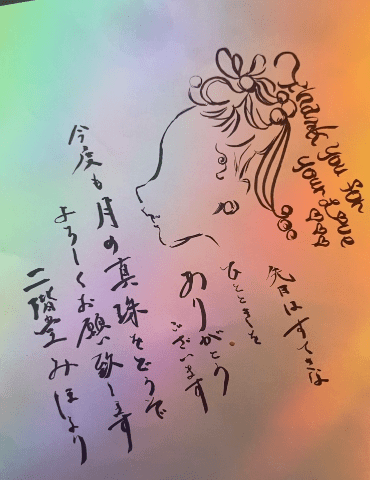 Thank you for
your Love
先日はすてきな
ひとときを
ありがとう
ございます
今度も月の真珠をどうぞ
よろしくお願い致します
二階堂みほより